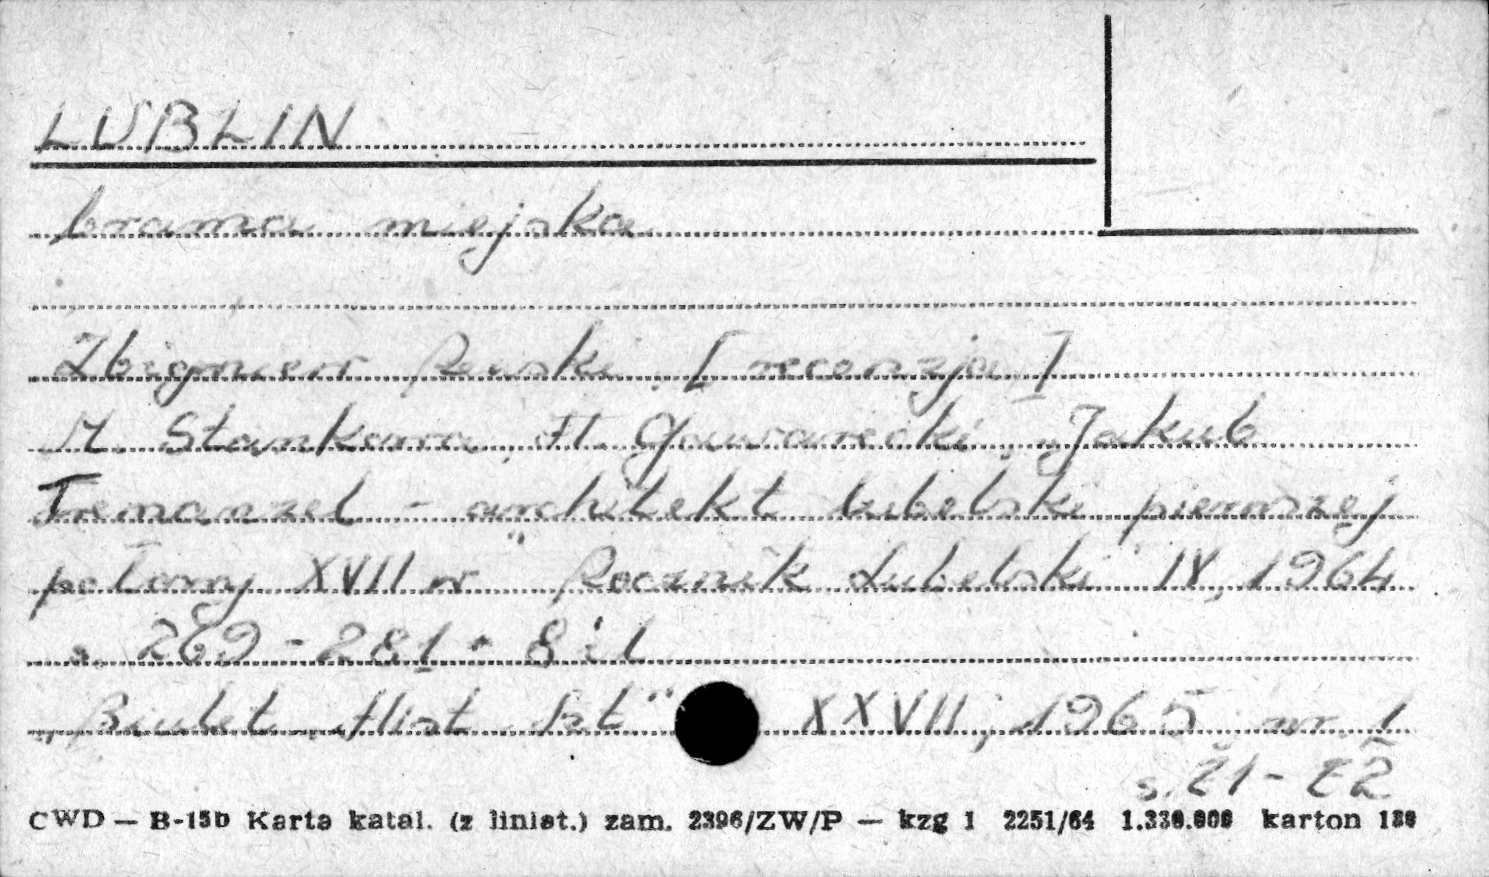 LUBLIN
brama miejska
Zbigniew Rewski [recenzja]
M. Stankowa, H. Gawarecki, „Jakub
Tremanzel - architekt lubelski pierwszej
połowy XVII w" Rocznik Lubelski IV, 1964
s. 269-281 + 8 il
„Biulet. Hist. Szt" XXVII, 1965 nr. 1
s.
CWD — B-15b Karta katal. (z liniat.) zam. 2396/ZW/P — kzg 1 2251/64 karton